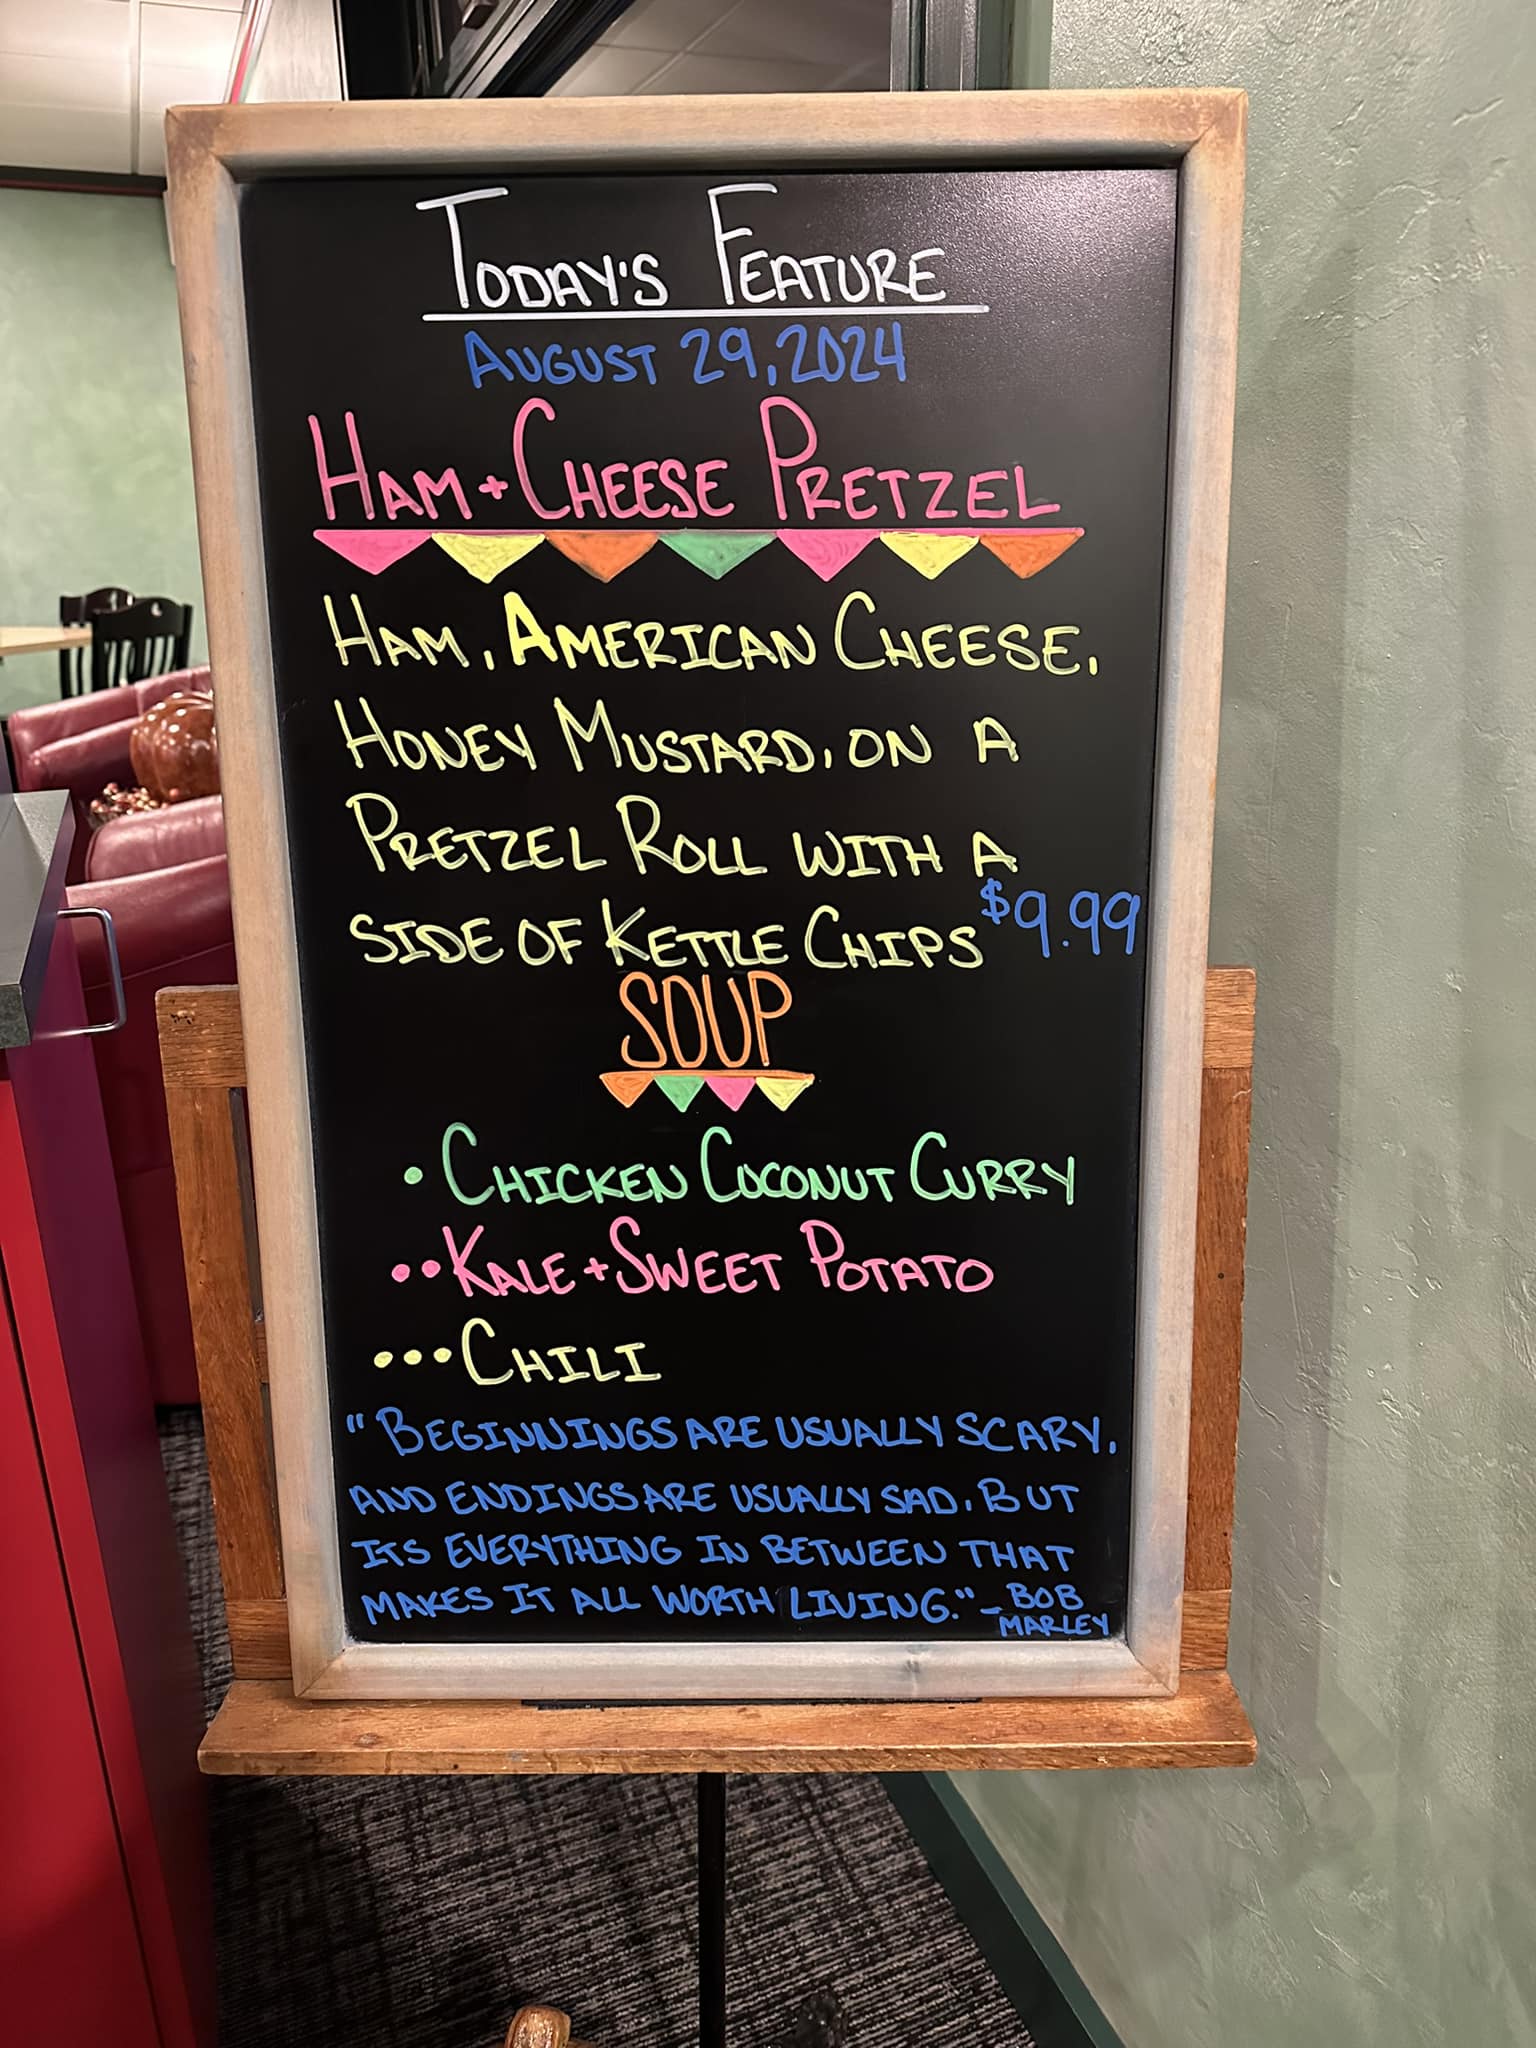 TODAY'S FEATURE
AUGUST 29, 2024
HAM + CHEESE PRETZEL
HAM, AMERICAN CHEESE,
HONEY MUSTARD, ON A
PRETZEL ROLL WITH A
SIDE OF KETTLE CHIPS $9.99
SOUP
• CHICKEN COCONUT CURRY
•• KALE + SWEET POTATO
••• CHILI
"BEGINNINGS ARE USUALLY SCARY,
AND ENDINGS ARE USUALLY SAD, BUT
ITS EVERYTHING IN BETWEEN THAT
MAKES IT ALL WORTH LIVING." - BOB
MARLEY